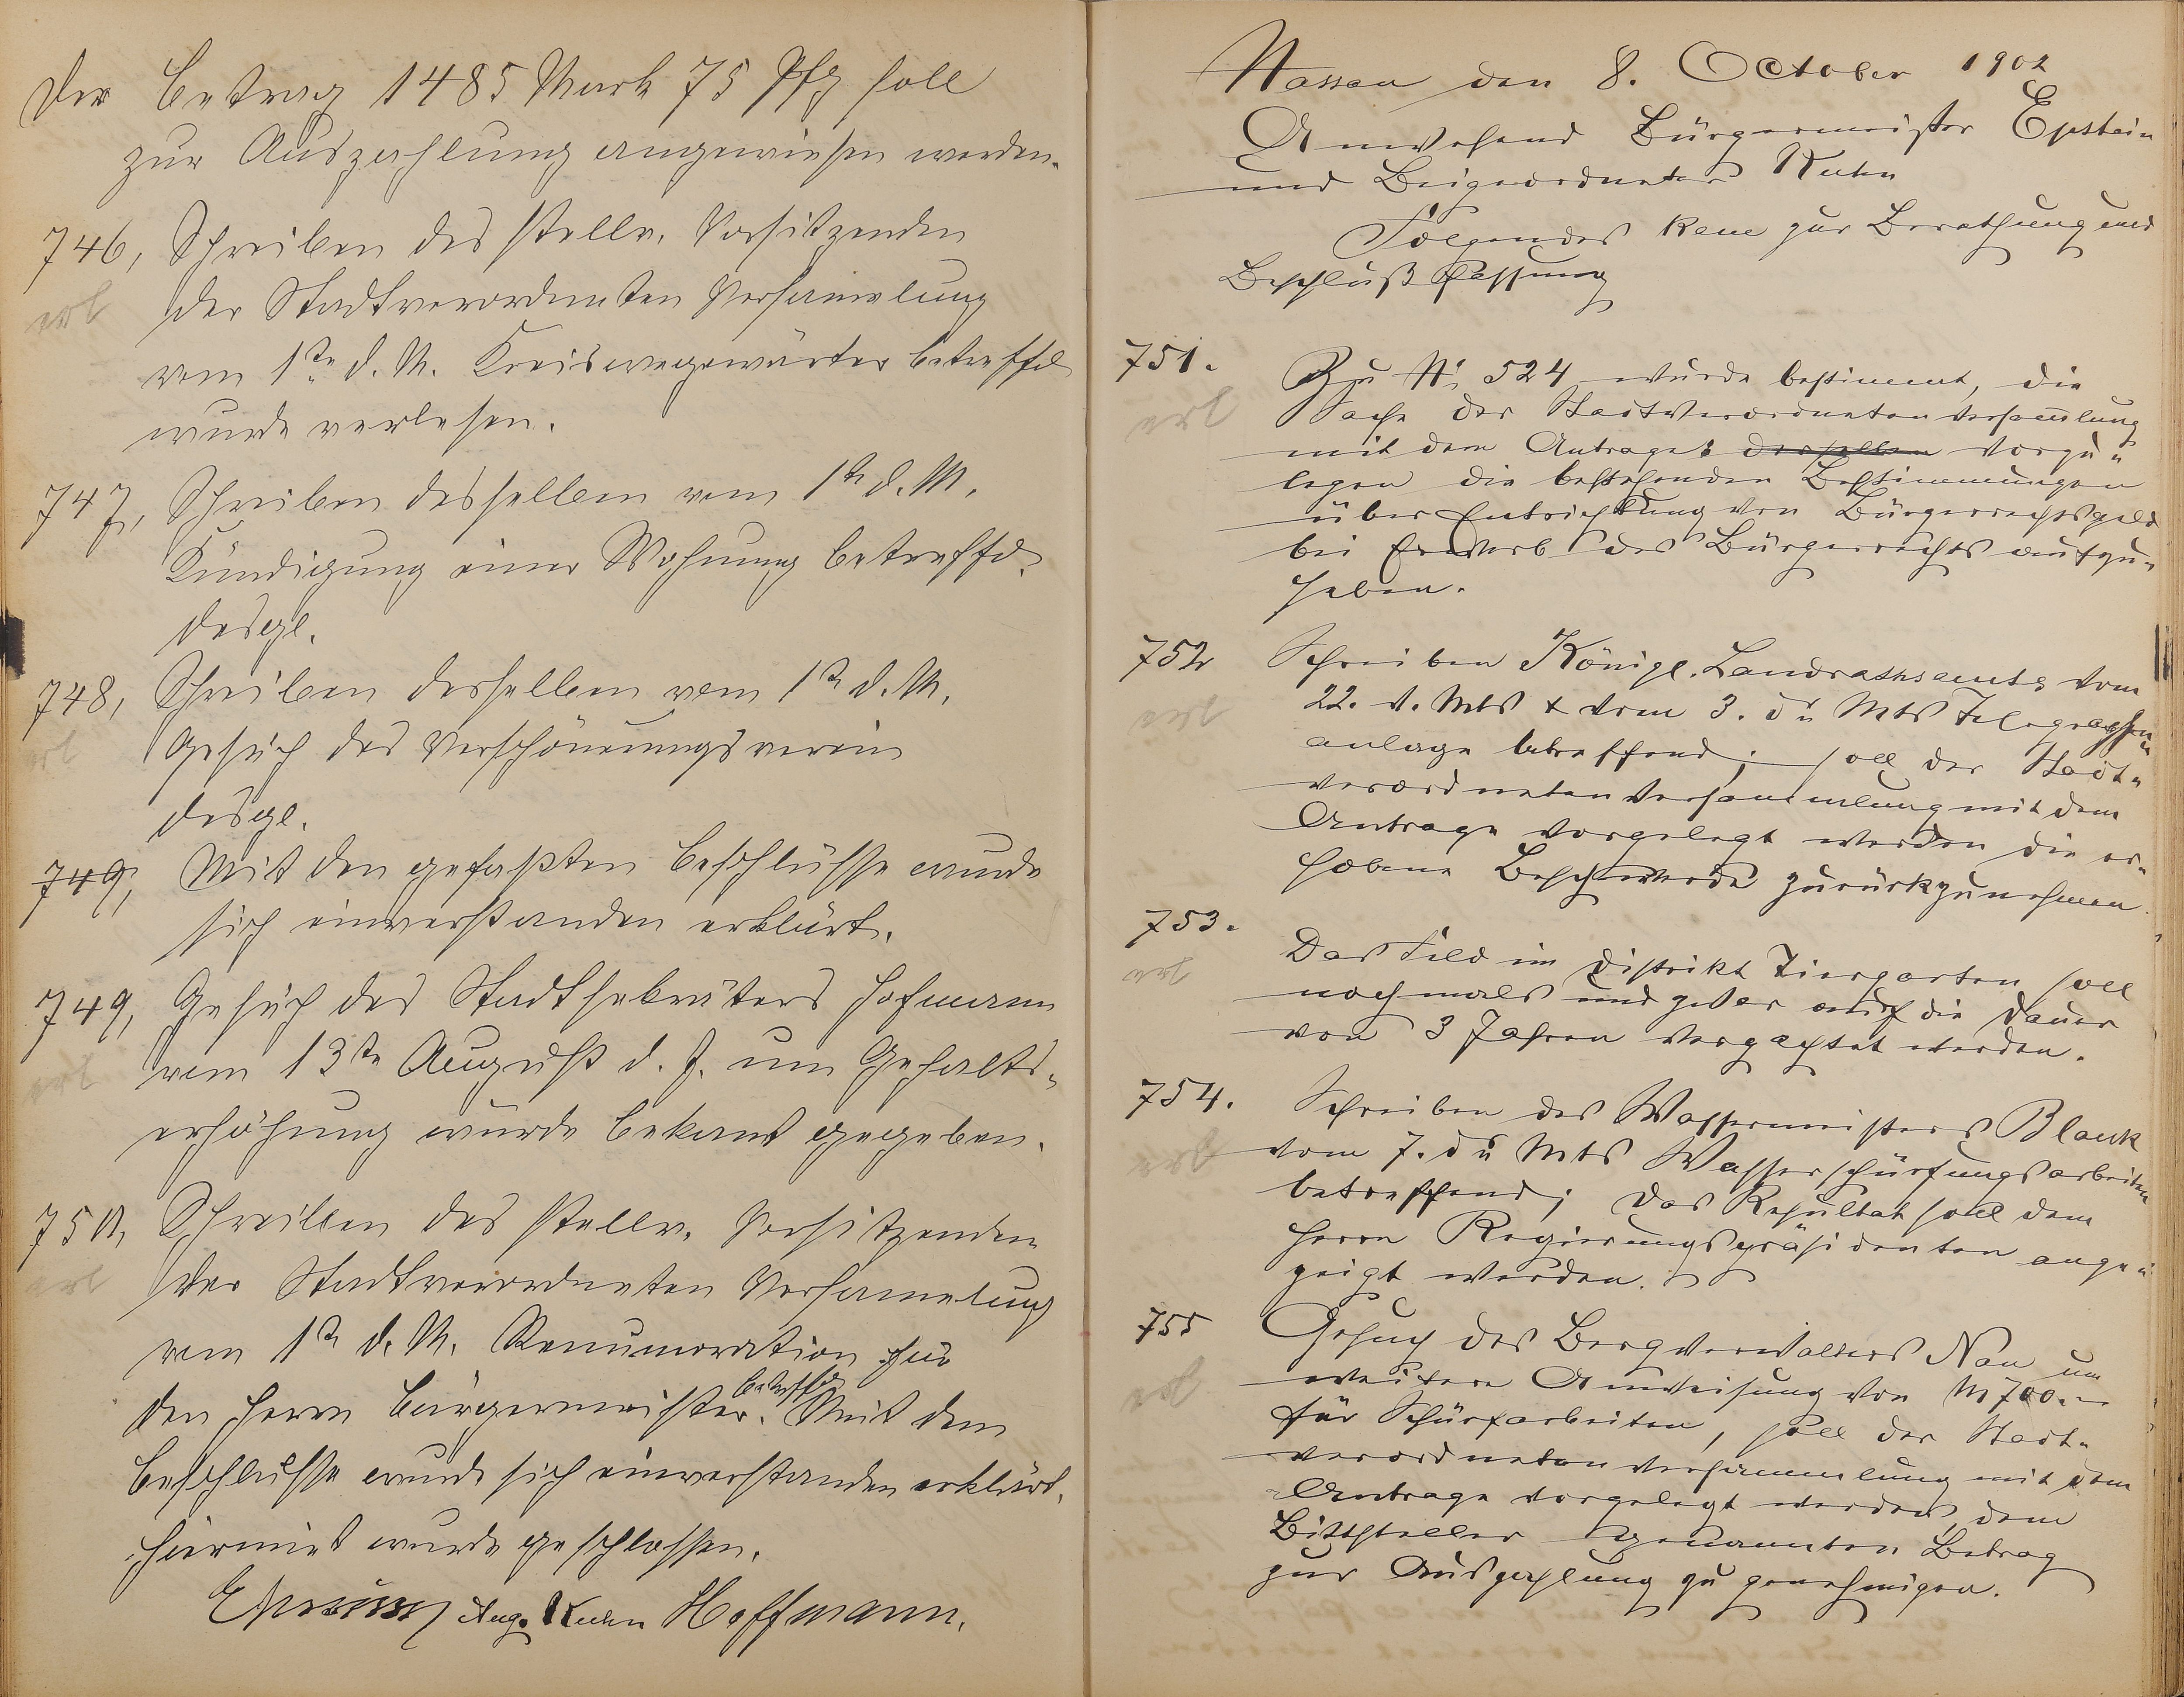 Der Betrag 1485 Mark 75 Pfg soll
zur Auszahlung angewiesen werden.
746, Schreiben des stellv. Vorsitzenden
erl der Stadtverordneten Versamelung
vom 1ten d. M. Kreiswegewärter betreffd
wurde verlesen.
747, Schreiben desselben vom 1ten d. M.
Kündigung einer Wohnung betreffd.
desgl.
748, Schreiben desselben vom 1ten d. M.
erl Gesuch des Verschönerungsverein
desgl.
749, Mit den gefaßten Beschlüsse wurde
sich einverstanden erklärt.
749, Gesuch des Stadtsekretärs Hofmann
erl vom 13ten August d. J. um Gehalts-
erhöhung wurde bekant gegeben.
750, Schreiben des stellv. Vorsitzenden
erl der Stadtverordneten Versamelung
vom 1ten d. M. Renumoration für
den Herrn Bürgermeister betreffd. Mit dem
Beschlusse wurde sich einverstanden erklärt.
Hiermit wurde geschlossen.
Aug. Kuhn Hoffmann.
Nassau den 8. October 1902
Anwesend Bürgermeister Epstein
und Beigeordneter Kuhn
Folgendes kam zur Berathung und
Beschlußfassung
751. Zu No. 524 wurde bestimmt, die
erl Sache der Stadtverordneten Versamlung
mit dem Antrage derselben vorzu-
legen die bestehenden Bestimmungen
über Entrichtung von Bürgerrechtsgeld
bei Erwerb des Bürgerrechts aufzu-
heben.
752 Schreiben Königl. Landrathsamts vom
erl 22. v. Mts & vom 3. ds Mts Telegraphen-
anlage betreffend; soll der Stadt-
verordneten Versammlung mit dem
Antrage vorgelegt werden die er-
hobene Beschwerde zurückzunehmen.
753. Das Feld im Distrikt Tiergarten soll
erl nochmals und zwar auf die Dauer
von 3 Jahren verpachtet werden.
754. Schreiben des Wassermeisters Blank
erl vom 7. ds Mts Wasserschürfungsarbeiten
betreffend; das Resultat soll dem
Herrn Regierungspräsidenten ange-
zeigt werden.
755 Gesuch des Bergverwalters Nau um
erl weitere Anweisung von M 700.-
für Schürfarbeiten, soll der Stadt-
verordneten Versammlung mit dem
Antrage vorgelegt werden, dem
Bittsteller genannten Betrag
zur Auszahlung zu genehmigen.